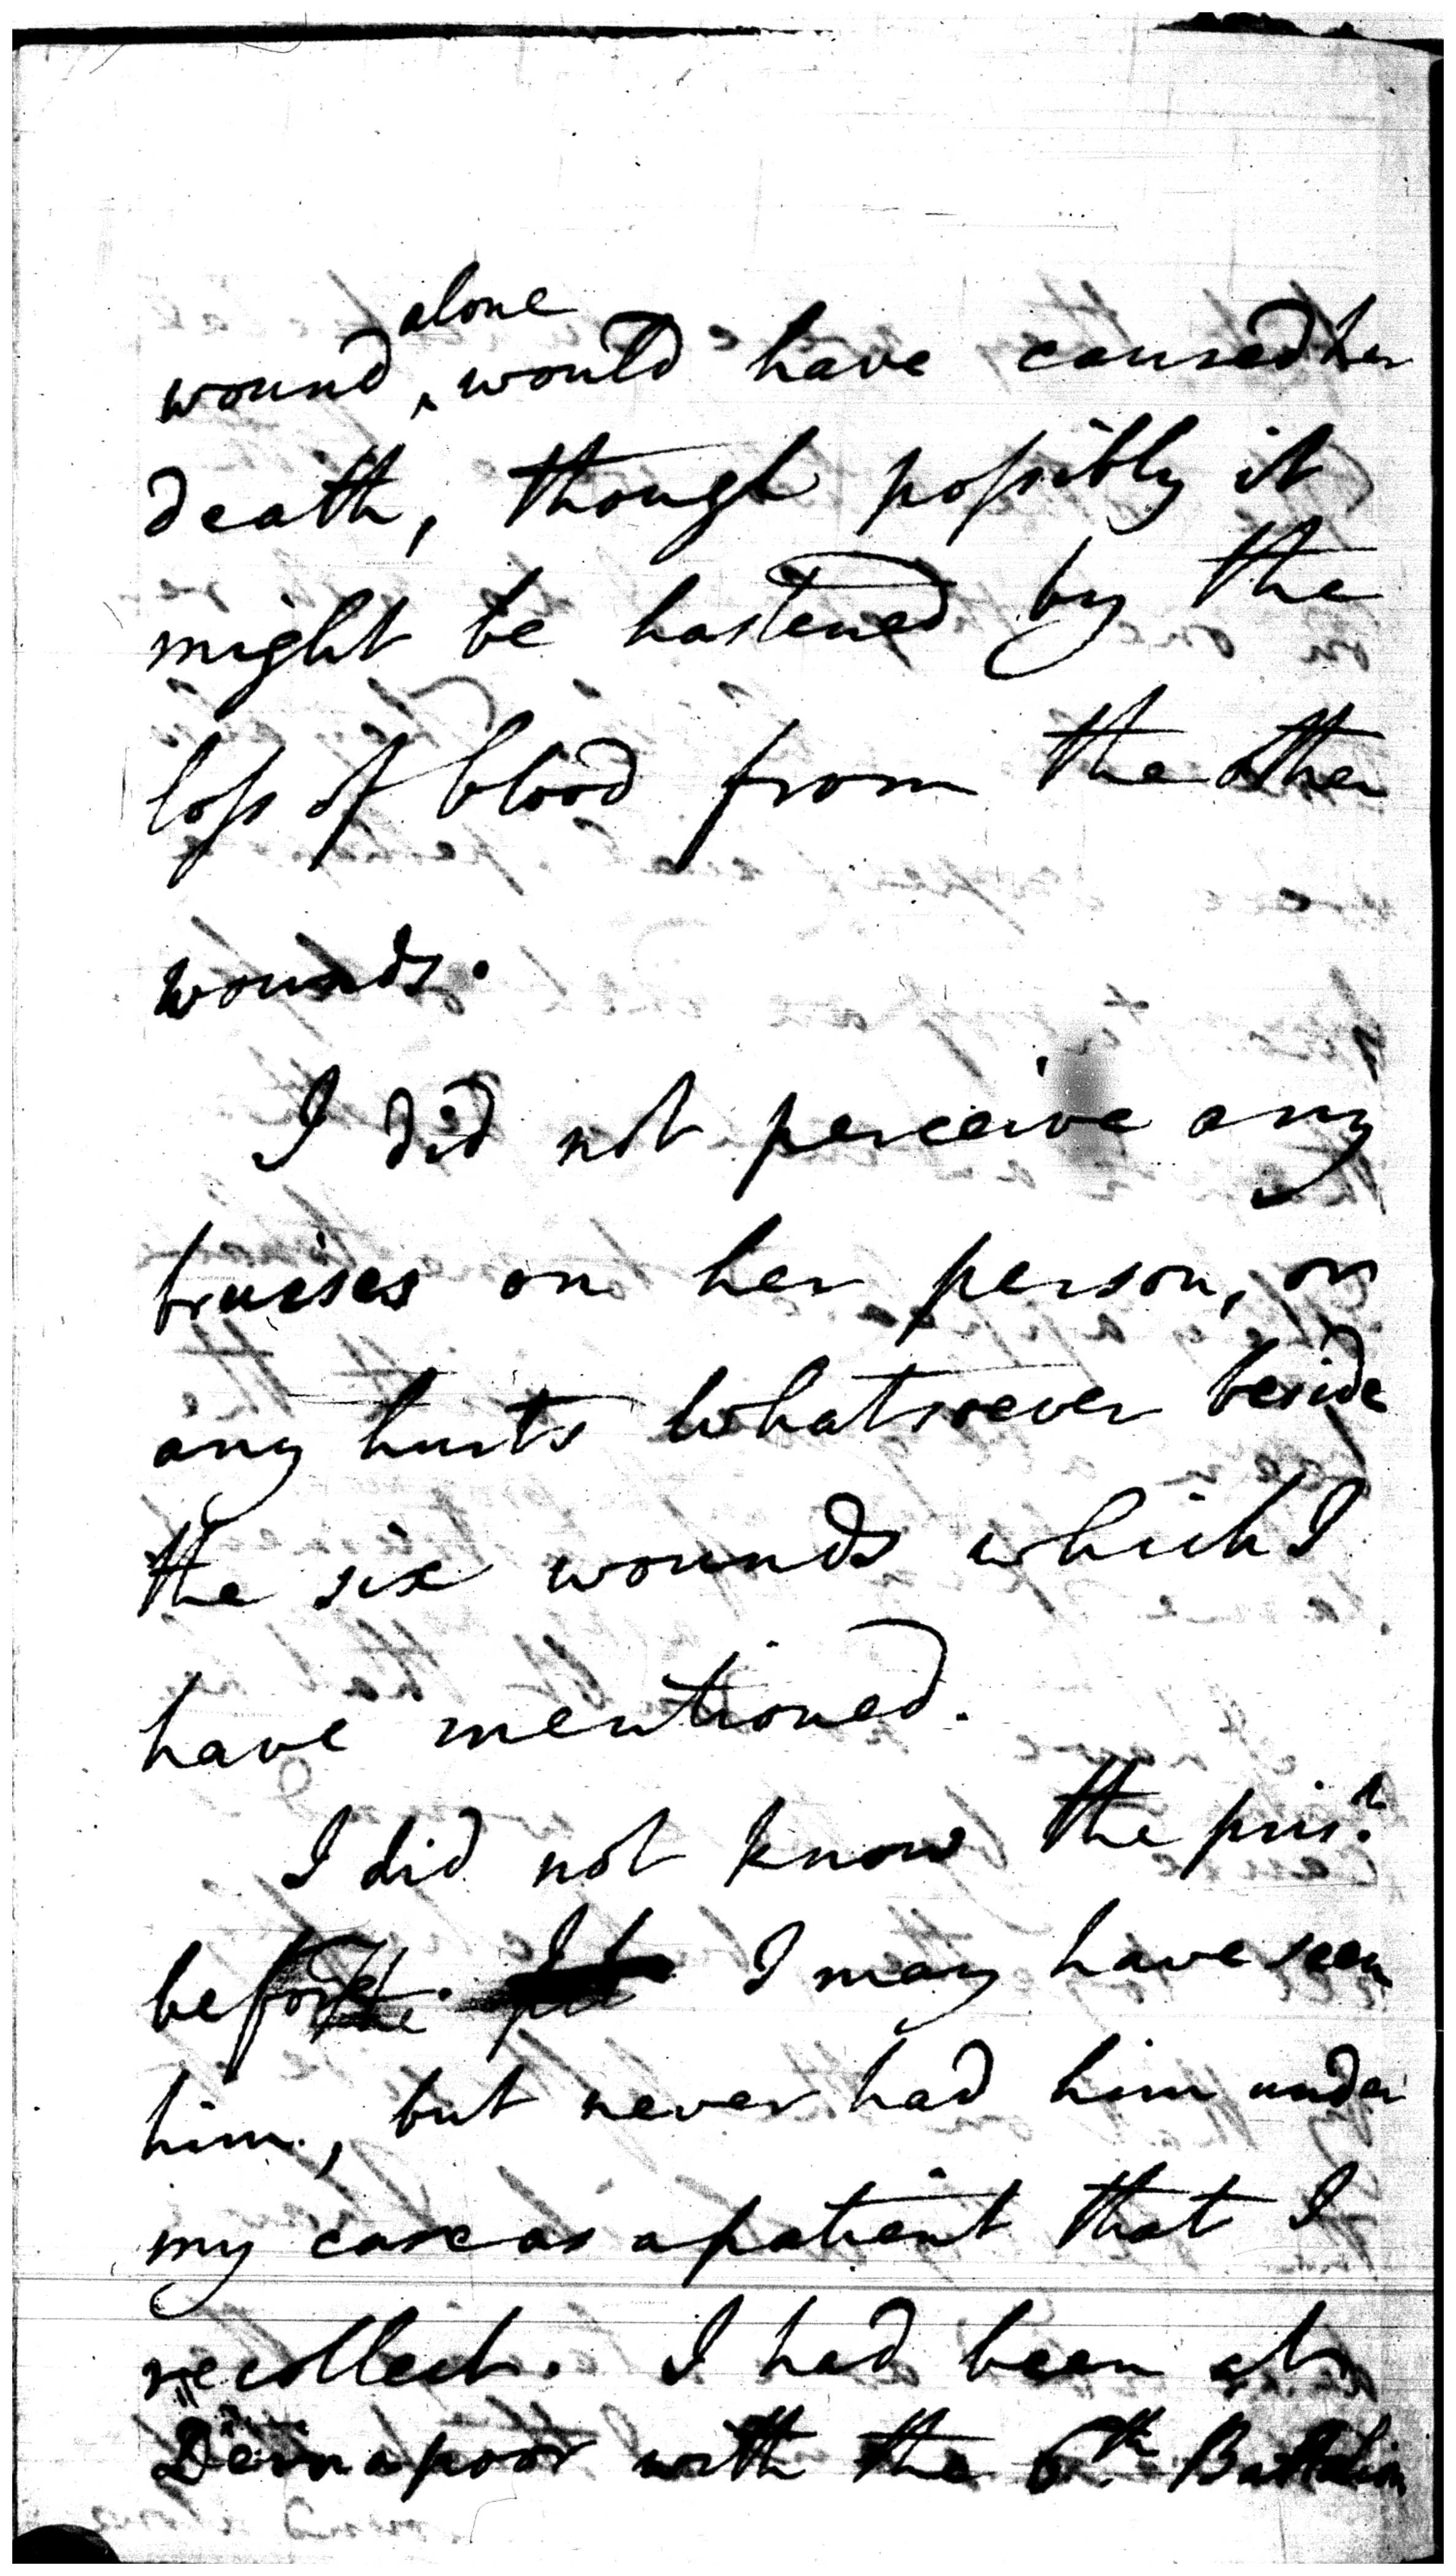 wound alone would have caused her
death, though possibly it
might be hastened by the
loss of blood from the other
wounds.
I did not perceive any
bruises on her person, or
any hurts whatsoever beside
the six wounds which I
have mentioned.
I did not know the prisr.
before. I may have seen
him, but never had him under
my care as a patient that I
recollect. I had been at
with the 6th. Battalion